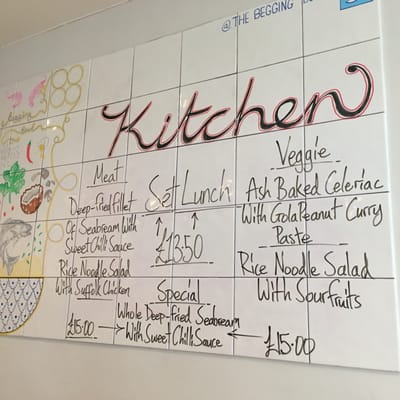 @ THE BEGGING
Kitchen
Meat
Deep-fried fillet
Of Seabream With
Sweet Chilli Sauce
Rice Noodle Salad
With Suffolk Chicken
£15.00
Set Lunch
£13.50
Special
Whole Deep-fried Seabream
With Sweet Chilli Sauce
Veggie
Ash Baked Celeriac
With Gola Peanut Curry
Paste
Rice Noodle Salad
With Sour fruits
£15.00